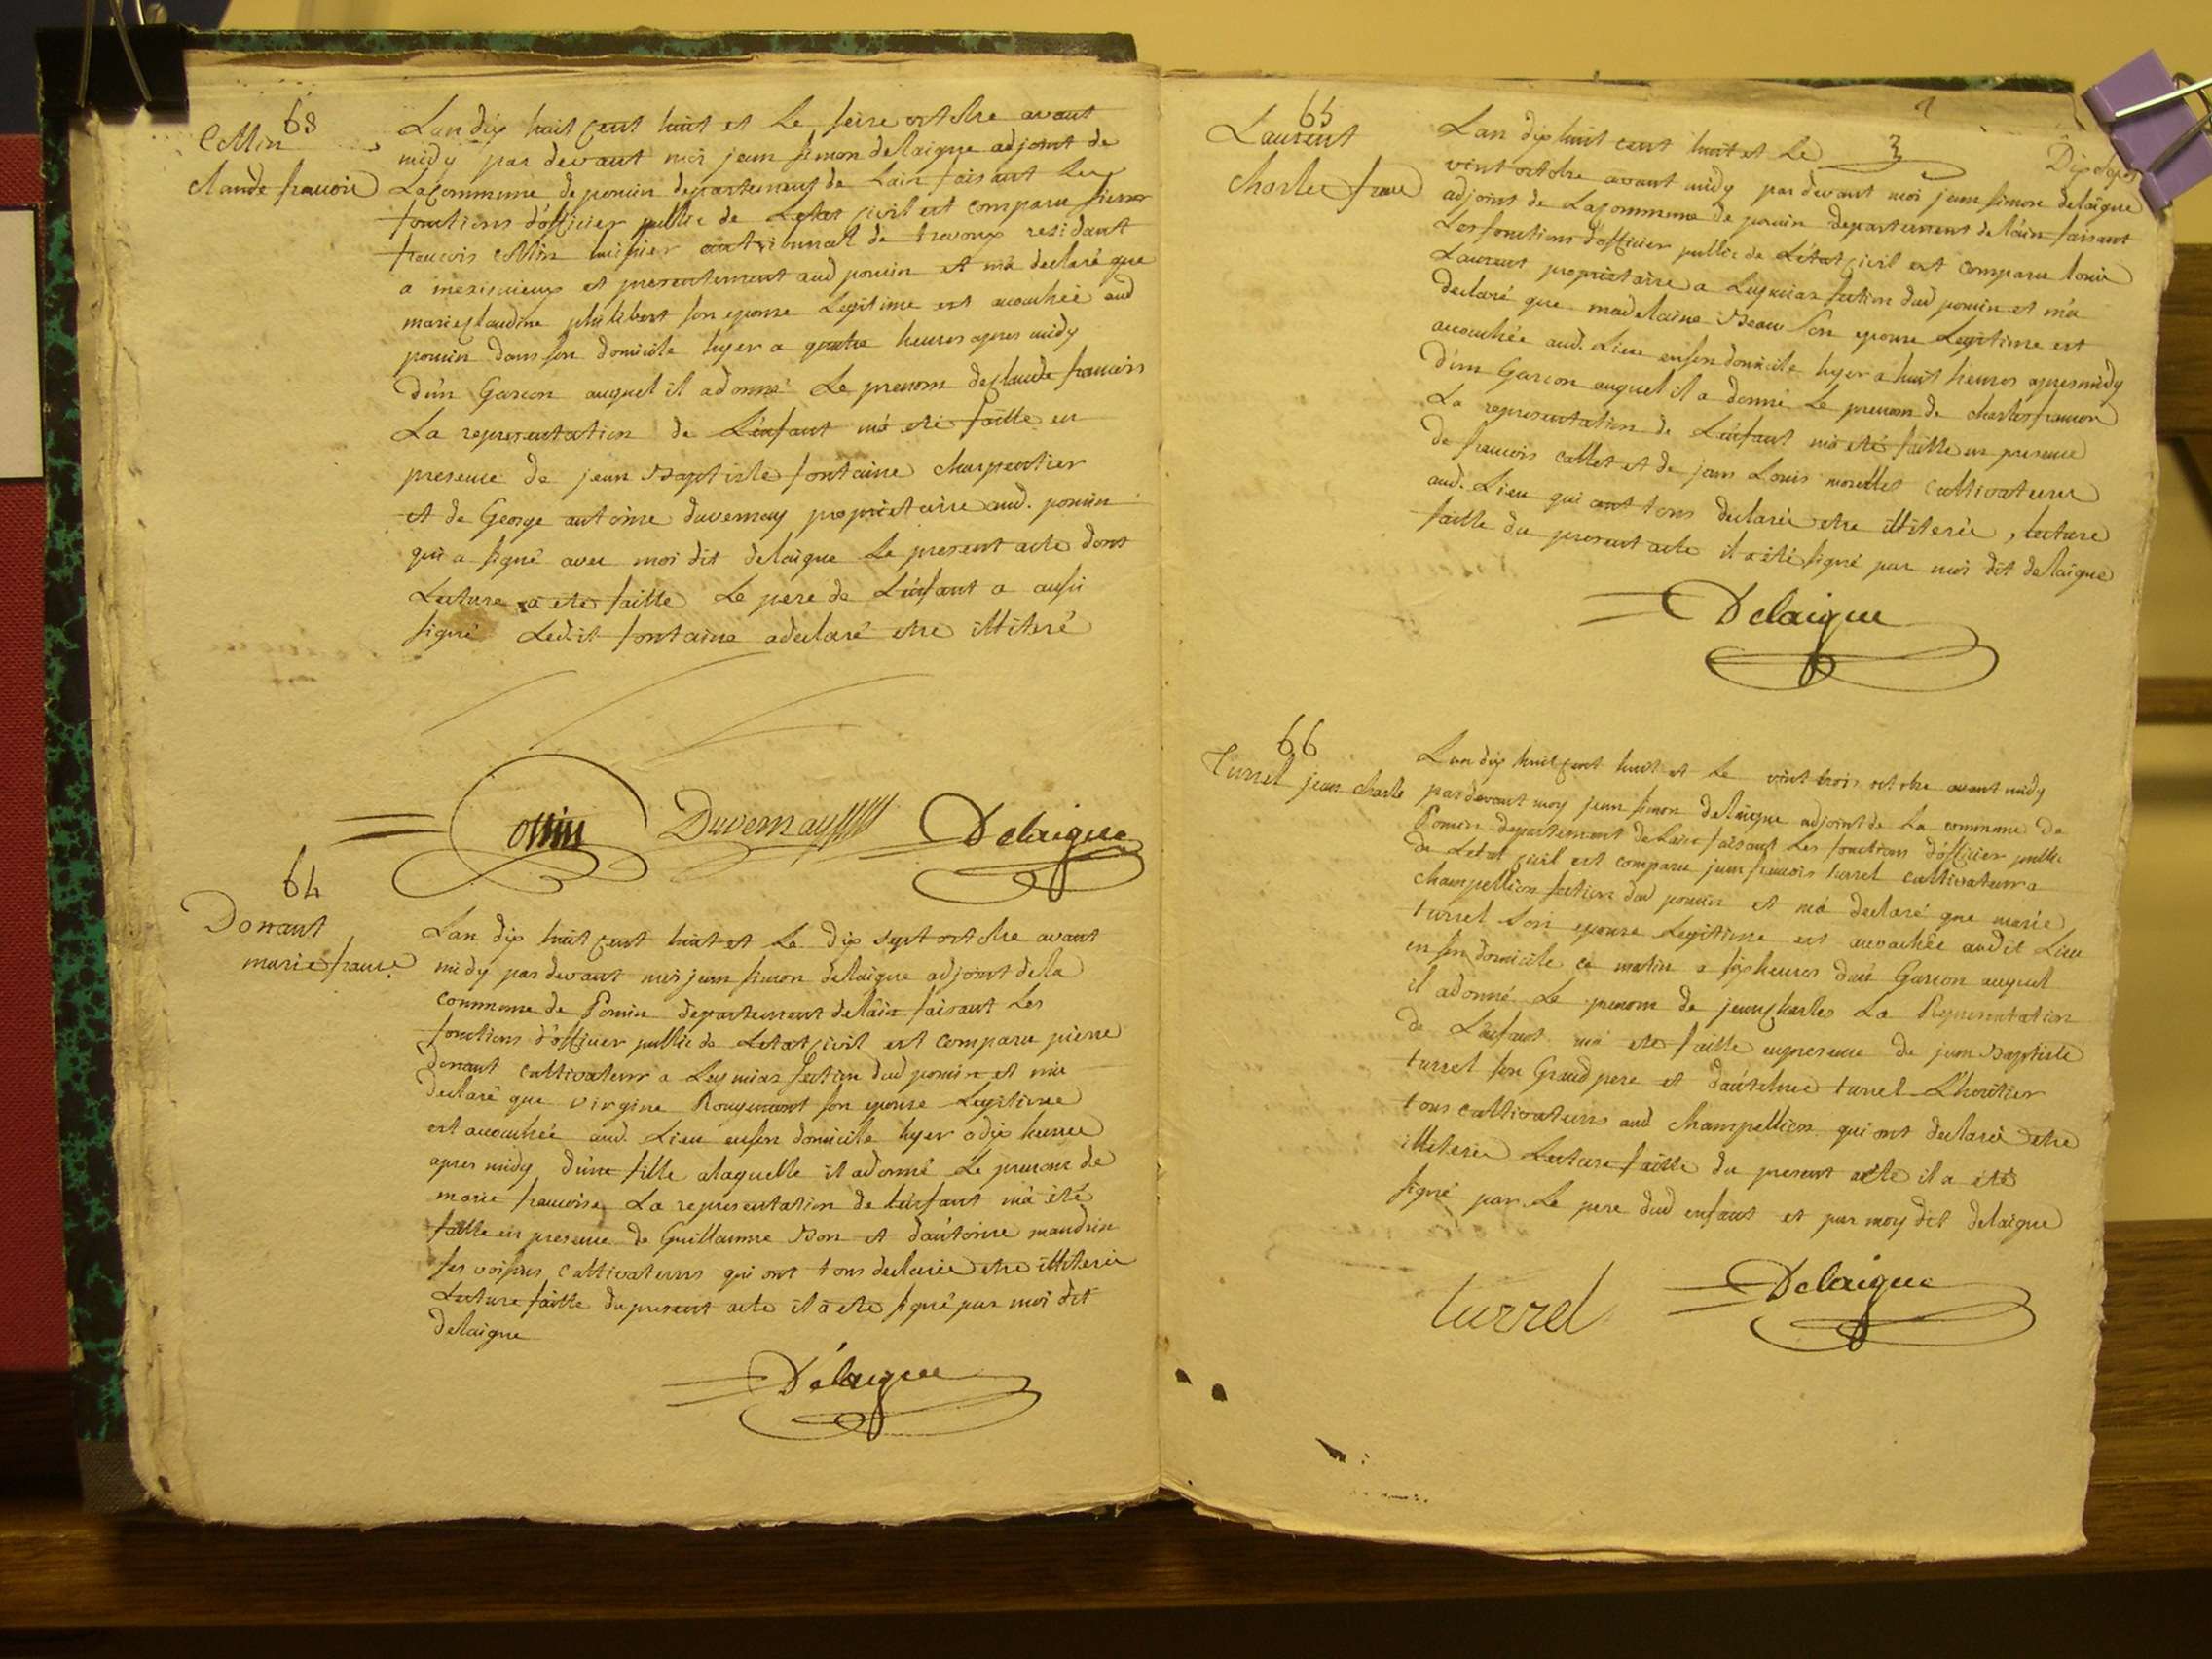 63
Collin
claude francois
Lan dix huit cent huit et le seize octobre avant
midy par devant moi jean simon delaigue adjoint de
La commune de poncin departement de Lain faisant les
fonctions d'officier public de Letat civil est comparu sieur
francois collin huissier au tribunal de trevoux residant
a meximieux et presentement aud poncin et m'a declaré que
marie claudine philibert son epouse Legitime est acouchée aud
poncin dans son domicile hyer a quatre heures apres midy
d'un Garcon auquel il a donné Le prenom de claude francois
La representation de L'enfant m'a eté faitte en
presence de jean Baptiste fontaine charpentier
et de George antoine duvernay proprietaire aud. poncin
qui a signé avec moi dit delaigue Le present acte dont
Lecture a ete faitte Le pere de L'enfant a aussi
signé Ledit fontaine a declaré etre illiteré
Collin Duvernay Delaigue
64
Donant
marie franc.
Lan dix huit cent huit et Le dix sept octobre avant
midy par devant moi jean simon delaigue adjoint de la
commune de Poncin departement de lain faisant Les
fonctions d'officier public de Letat civil est comparu pierre
donant cultivateur a Leymiaz section dud poncin et m'a
declaré que virgine Rougemont son epouse Legitime
est acouchée aud. Lieu en son domicile hyer a dix heures
apres midy d'une fille a laquelle il a donné Le prenom de
marie francoise La representation de L'enfant m'a été
faitte en presence de Guillaume Bon et d'antoine mandrin
ses voisins cultivateurs qui ont tous declarés etre illiterés
Lecture faitte du present acte il a ete signé par moi dit
delaigue
Délaigue
65
Laurent
charles franc
Lan dix huit cent huit et Le
vint octobre avant midy par devant moi jean simon delaigue
adjoint de La commune de poncin departement de lain faisant
Les fonctions d'officier public de L'état civil est comparu louis
Laurent proprietaire a Leymiaz section dud poncin et m'a
declaré que madelaine Beau son epouse Legitime est
acouchée aud. Lieu en son domicile hyer a huit heures apres midy
d'un Garcon auquel il a donné Le prenom de charles francois
La representation de L'enfant m'a eté faitte en presence
de francois callet et de jean Louis cultivateurs
aud. Lieu qui ont tous declarés etre illiterés, Lecture
faitte du present acte il a été signé par moi dit delaigue
Delaigue
66
Turrel jean charle
Lan dix huit cent huit et Le vint trois octobre avant midy
par devant moy jean simon delaigue adjoint de La commune de
Poncin departement de Lain faisant Les fonctions d'officier public
de Letat civil est comparu jean francois turrel cultivateur a
champellion section dud poncin et m'a declaré que marie
turrel son epouse Legitime est acouchée audit Lieu
en son domicile ce matin a six heures d'un Garcon auquel
il a donné Le prenom de jean charles La Representation
de L'enfant m'a ete faitte en presence de jean Baptiste
turrel son Grand pere et d'antelme turrel
tous cultivateurs aud champellion qui ont declarés etre
illiterés Lecture faitte du present acte il a été
signé par Le pere dud enfant et par moy dit delaigue
turrel Delaigue